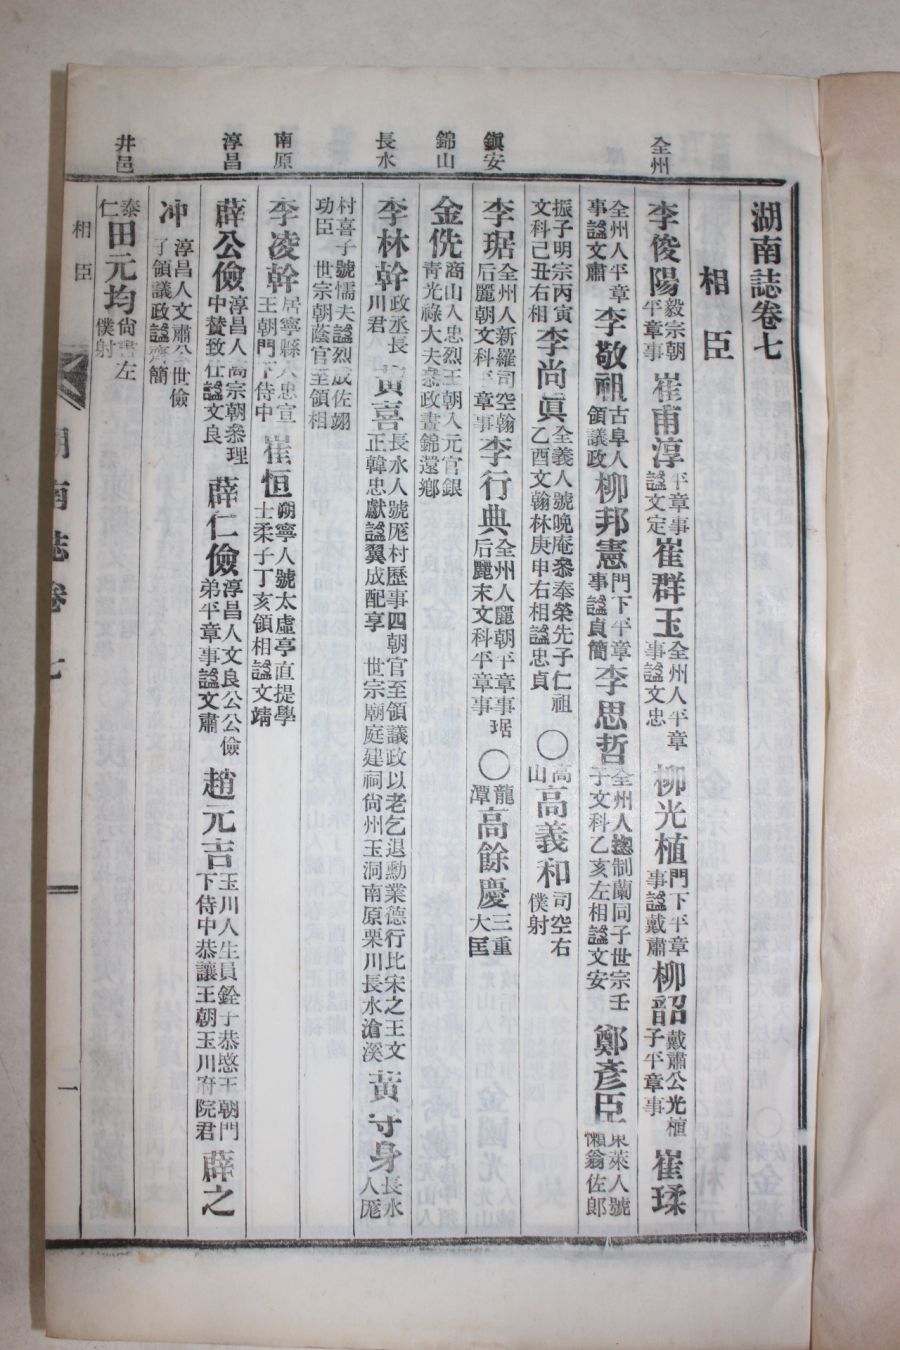 湖南誌卷七
相臣
全州
李俊陽 毅宗朝平章事 崔甫淳 平章事諡文定 崔群玉 全州人平章事諡文忠 柳光植 門下平章事諡戴肅 柳韶 戴肅公光植子平章事 崔瑈
全州人平章事諡文肅 李敬祖 古阜人領議政 柳邦憲 門下平章事諡貞簡 李思哲 全州人摠制蘭同子世宗壬子文科乙亥左相諡文安 鄭彥臣 東萊人號懶翁佐郞
振子明宗丙寅文科己丑右相 李尚眞 全義人號晚庵叅奉榮先子仁祖乙酉文翰林庚申右相諡忠貞 ○高山 高義和 司空右僕射
鎭安
李琚 全州人新羅司空翰后麗朝文科平章事 李行典 全州人麗朝平章事琚后麗末文科平章事 ○龍潭 高餘慶 三重大匡
錦山
金侁 商山人忠烈王朝入元官銀靑光祿大夫叅政晝錦還鄕
長水
李林幹 政丞長川君 黃喜 長水人號厖村歷事四朝官至領議政以老乞退勳業德行比宋之王文正韓忠獻諡翼成配享 世宗廟庭建祠尙州玉洞南原栗川長水滄溪 黃守身 長水人厖
村喜子號懦夫諡烈成佐翊功臣 世宗朝蔭官至領相
南原
李凌幹 居寧縣人忠宣王朝門下侍中 崔恒 朔寧人號太虛亭直提學士柔子丁亥領相諡文靖
淳昌
薛公儉 淳昌人高宗朝叅理中贊致仕諡文良 薛仁儉 淳昌人文良公公儉弟平章事諡文肅 趙元吉 玉川人生員銓子恭愍王朝門下侍中恭讓王朝玉川府院君 薛之
冲 淳昌人文肅公世儉子領議政諡齊簡
井邑
泰仁 田元均 尙書左僕射
相臣
湖南誌卷七
一